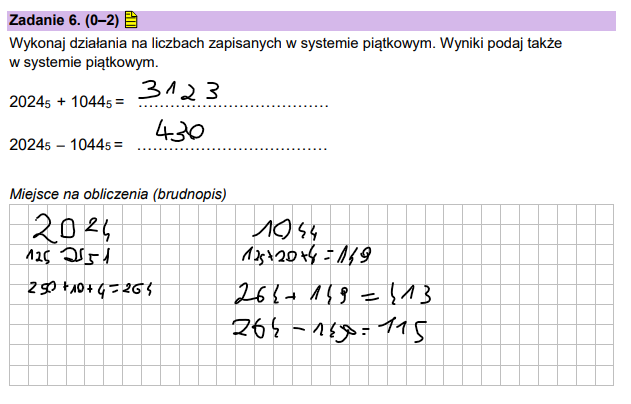 Zadanie 6. (0–2)
Wykonaj działania na liczbach zapisanych w systemie piątkowym. Wyniki podaj także
w systemie piątkowym.
2024₅ + 1044₅ = 3123
2024₅ – 1044₅ = 430
Miejsce na obliczenia (brudnopis)
2024 1044
125 25 5 1 125+20+4=149
250+10+4=264
264+149=413
264-149=115